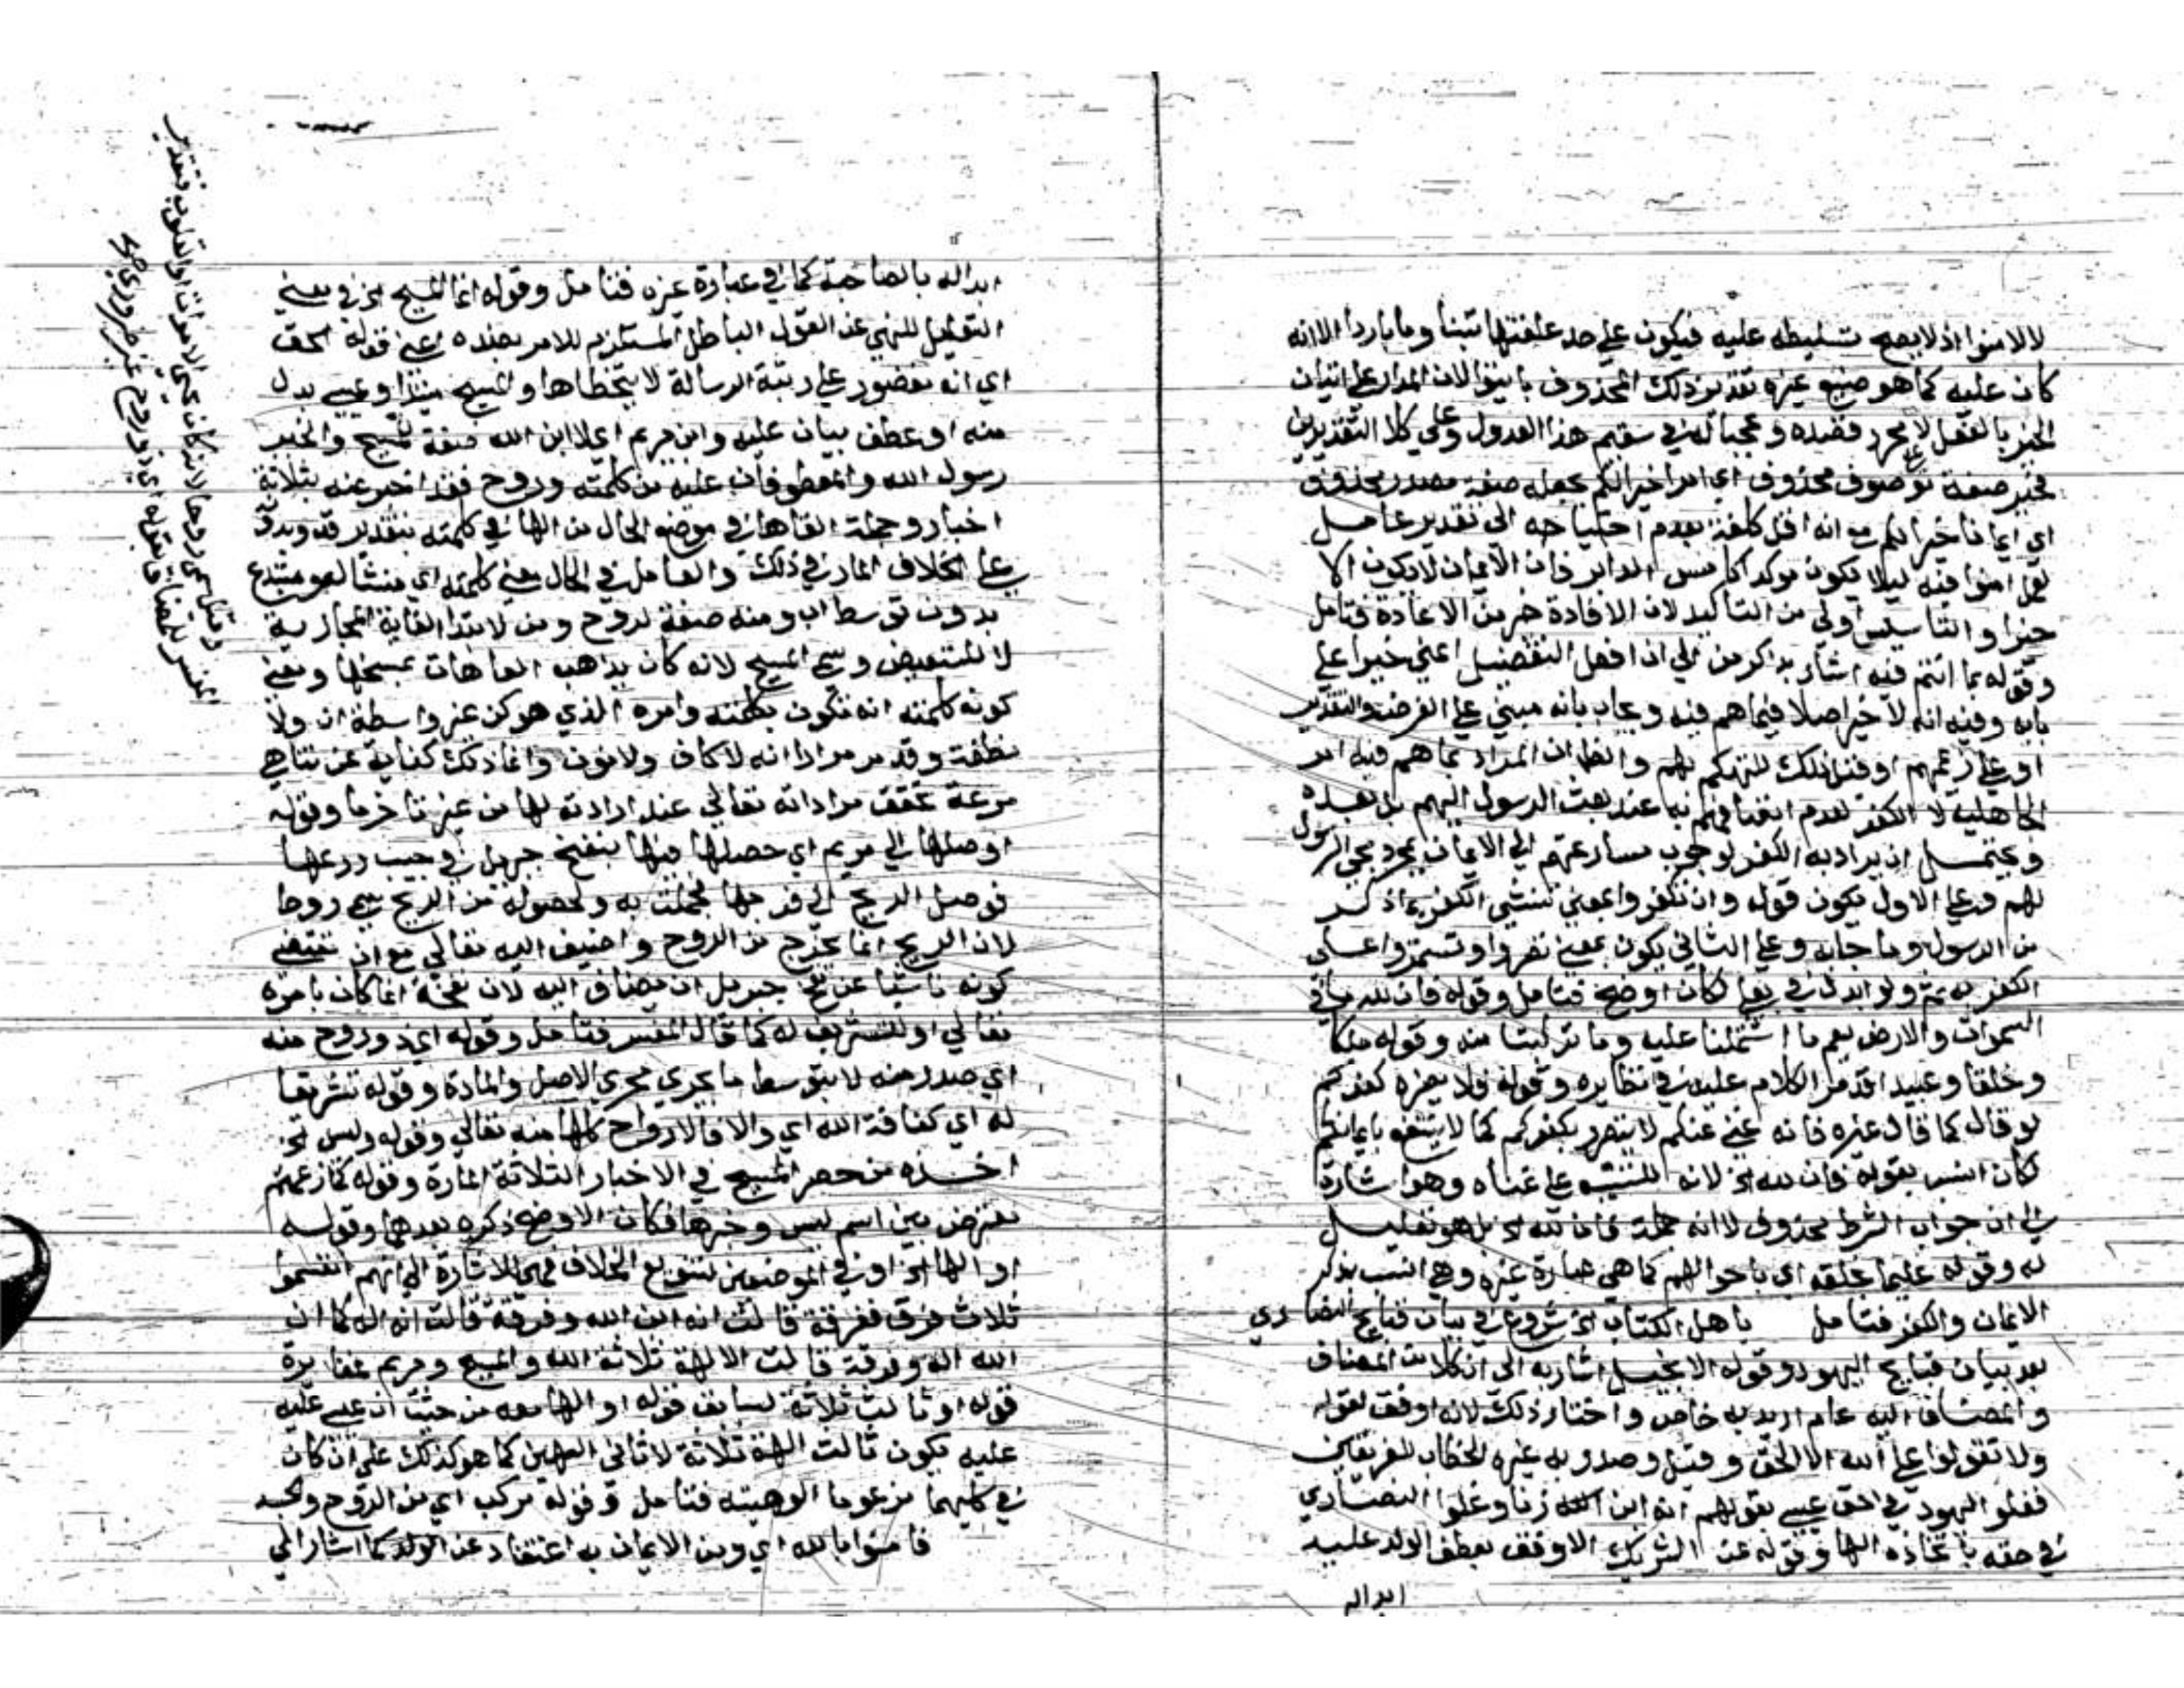 لالامنوا اذ لا يصح تسليطه عليه فيكون على حد علفتها تبنا وما باردا الا انه
كان عليه كما هو صنيع غيره تقدير ذلك المحذوف باينوا لان المدار على اتيان
الخبر بالفعل لا مجرد قصده وعجبا له في سقيم هذا العدول وعلى كلا التقديرين
فخير صفة لموصوف محذوف اي امرا خيرا لكم بجعله صفة مصدر محذوف
اي ايمانا خيرا لكم مع انه اقل كلفة بعدم احتياجه الى تقدير عامل
لعل امنوا فيه ليلا يكون موكدا كامس الدابر فان الايمان لا يكون الا
خيرا والتاسيس اولى من التاكيد لان الافادة خير من الاعادة فتامل
وقوله بما انتم فيه اشار بذكر من الى ان افعل التفضيل اعني خيرا على
بابه وفيه انه لا خير اصلا فيما هم فيه وبجاب بانه مبني على الفرض والتقدير
او على زعمهم او قيل ذلك للتهكم بهم والظ ان المراد بما هم فيه امر
الجاهلية لا الكفر لعدم اتصافهم به عند بعث الرسول اليهم بل بعده
ويحتمل ان يراد به الكفر لوجوب مسارعتهم الى الايمان بمجرد مجي الرسول
لهم وعلى الاول يكون قوله وان تكفروا بمعنى تنشئ الكفر بما ذكر
من الرسول وما جا به وعلى الثاني يكون بمعنى تصروا وتستمروا على
الكفر به ثم ولو ابدل في بما لكان اوضح فتامل وقوله فان لله ما في
السموات والارض يعم ما اشتملتا عليه وما تركبتا منه وقوله ملكا
وخلقا وعبيدا قد مر الكلام عليه في نظايره وقوله فلا يضره كفركم
لو قال كما قال غيره فانه غني عنكم لا يتضرر بكفركم كما لا ينتفع بايمانكم
لكان انسب بقوله فان لله الخ لانه للتنبيه على غناه وهو اشارة
الى ان جواب الشرط محذوف لا انه جملة فان لله الخ بل هو تعليل
له وقوله عليما بخلقه اي باحوالهم كما هي عبارة غيره وهي انسب بذكر
الايمان والكفر فتامل يا اهل الكتاب الخ شروع في بيان قبايح النصارى
بعد بيان قبايح اليهود وقوله الانجيل اشار به الى ان كلا من المضاف
والمضاف اليه عام اريد به خاص واختار ذلك لانه اوفق لقوله
ولا تقولوا على الله الا الحق وقيل وصدر به غيره الخطاب للفريقين
فغلو اليهود في حق عيسى بقولهم انه ابن زنا وغلوا النصارى
في حقه باتخاذه الها وقوله عن الشريك الاوفق بعطف الولد عليه
ابداله
ابداله بالصاحبة كما في عبارة غيره فتامل وقوله انما المسيح الخ في معنى
التعليل للنهي عن القول الباطل المستلزم للامر بضده اعني قوله الحق
اي انه مقصور على رتبة الرسالة لا يتخطاها والمسيح مبتدا وعيسى بدل
منه او عطف بيان عليه وابن مريم اي لا ابن الله صفة للمسيح والخبر
رسول الله والمعطوفان عليه من كلمته وروح فقد اخبر عنه بثلاثة
اخبار وجملة القاها في موضع الحال من الها في كلمته بتقدير قد وبدونه
على الخلاف المار في ذلك والعامل في الحال معنى كلمته اي منشا لهو مبتدع
بدون توسط اب ومنه صفة لروح ومن لابتدا الغاية المجازية
لا للتبعيض وسمي المسيح لانه كان يذاهب العاهات بمسحها ومعنى
كونه كلمته انه تكون بكلمته وامره الذي هو كن غير واسطة اب ولا
نطفة وقد مر مرارا انه لا كاف ولا نون وانما ذلك كناية عن تناهي
سرعة تحقق مراداته تعالى عند ارادته لها من غير تاخر ما وقوله
اوصلها الى مريم اي حصلها فيها بنفخ جبريل في جيب درعها
فوصل الريح الى فرجها فحملت به ولحصوله من الريح سمي روحا
لان الريح انما يخرج من الروح واضيف اليه تعالى مع ان مقتضى
كونه ناشيا عن نفخ جبريل ان يضاف اليه لان نفخه انما كان بامره
تعالى او للتشريف له كما قال المفسر فتامل وقوله اي ذو روح منه
اي صدر منه لا بتوسط ما يجري مجرى الاصل والمادة وقوله تشريفا
له اي كناقة الله اي والا فالارواح كلها منه تعالى وقوله وليس الخ
اخذه من حصر المسيح في الاخبار الثلاثة المارة وقوله كما زعمتم
معترض بين اسم ليس وخبرها فكان الاوضح ذكره بعدهما وقوله
او الها الخ او في الموضعين لتنويع الخلاف فهي للاشارة الى انهم انقسموا
ثلاث فرق ففرقة قالت انه ابن الله وفرقة قالت انه اله كما ان
الله اله وفرقة قالت الالهة ثلاثة الله والمسيح ومريم فمغايرة
قوله او ثالث ثلاثة لسابق قوله او الها معه من حيث ان عيسى عليه
عليه يكون ثالث الهة ثلاثة لا ثاني الهين كما هو كذلك على ان كان
في كليهما مزعوما الوهيته فتامل وقوله مركب اي من الروح والجسد
فامنوا بالله اي ومن الايمان به اعتقاد عن الولد كما اشار الى
وقيل سمي روحا لانه كان يحيي الاموات او القلوب فتقدير
المفسر للمضاف بقوله اي ذو روح غير ضروري